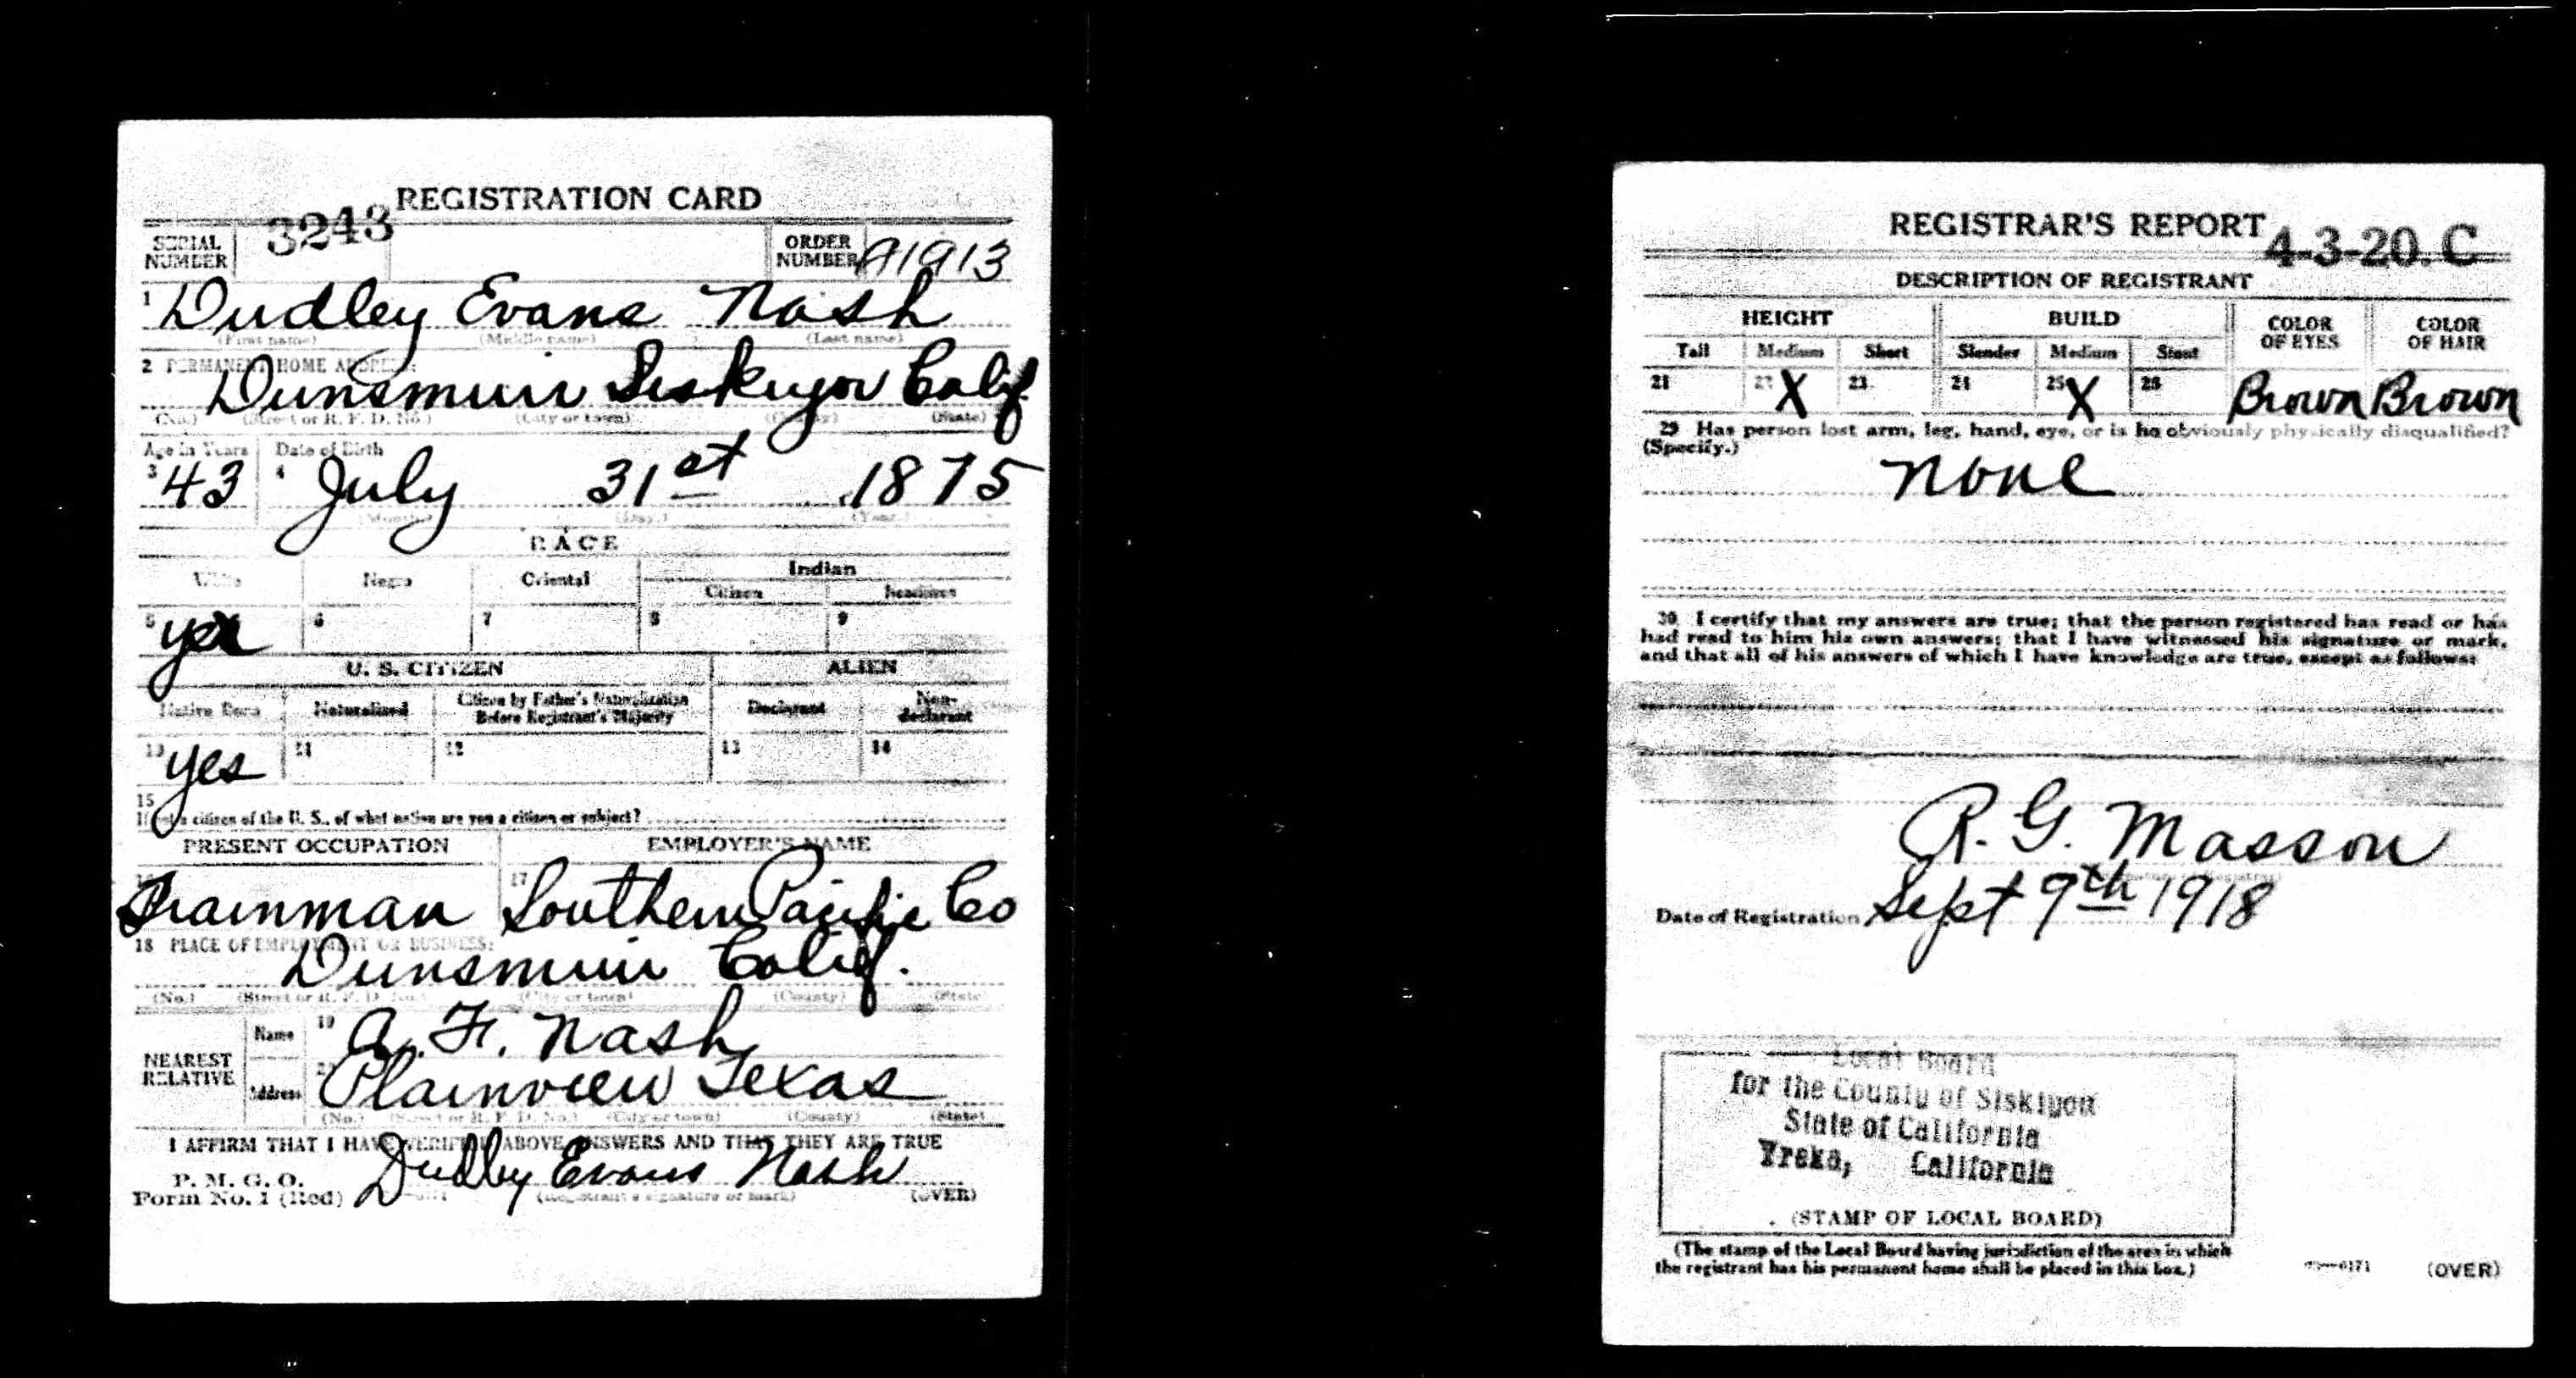 REGISTRATION CARD
SERIAL NUMBER 3243 ORDER NUMBER A1913
1 Dudley Evans Nash
(First name) (Middle name) (Last name)
2 PERMANENT HOME ADDRESS:
Dunsmuir Siskiyou Calif.
(No.) (Street or R. F. D. No.) (City or town) (County) (State)
Age in Years Date of Birth
3 43 4 July 31st 1875
(Month.) (Day.) (Year.)
RACE
White Negro Oriental Indian
Citizen
5 yes 6 7 8 9
U. S. CITIZEN ALIEN
Native Born Naturalized Citizen by Father's Naturalization Before Registrant's Majority Declarant Non-declarant
10 yes 11 12 13 14
15
If not a citizen of the U. S., of what nation are you a citizen or subject?
PRESENT OCCUPATION EMPLOYER'S NAME
Trainman 17 Southern Pacific Co
18 PLACE OF EMPLOYMENT OR BUSINESS:
Dunsmuir Calif.
(No.) (Street or R. F. D. No.) (City or town) (County) (State
NEAREST RELATIVE Name 19 A. F. Nash
Address 20 Plainview Texas
(No.) (Street or R. F. D. No.) (City or town) (County) (State)
I AFFIRM THAT I HAVE VERIFIED ABOVE ANSWERS AND THAT THEY ARE TRUE
P. M. G. O.
Form No. 1 (Red) Dudley Evans Nash
(Registrant's signature or mark) (OVER)
REGISTRAR'S REPORT 4-3-20. C
DESCRIPTION OF REGISTRANT
HEIGHT BUILD COLOR OF EYES COLOR OF HAIR
Tall Medium Short Slender Medium Stout
21 22 X 23 24 25 X 26 Brown Brown
29 Has person lost arm, leg, hand, eye, or is he obviously physically disqualified?
(Specify.)
none
30. I certify that my answers are true; that the person registered has read or has
had read to him his own answers; that I have witnessed his signature or mark,
and that all of his answers of which I have knowledge are true, except as follows:
R. G. Masson
Date of Registration Sept 9th 1918
Local Board
for the County of Siskiyou
State of California
Yreka, California
(STAMP OF LOCAL BOARD)
(The stamp of the Local Board having jurisdiction of the area in which
the registrant has his permanent home shall be placed in this box.)
(OVER)